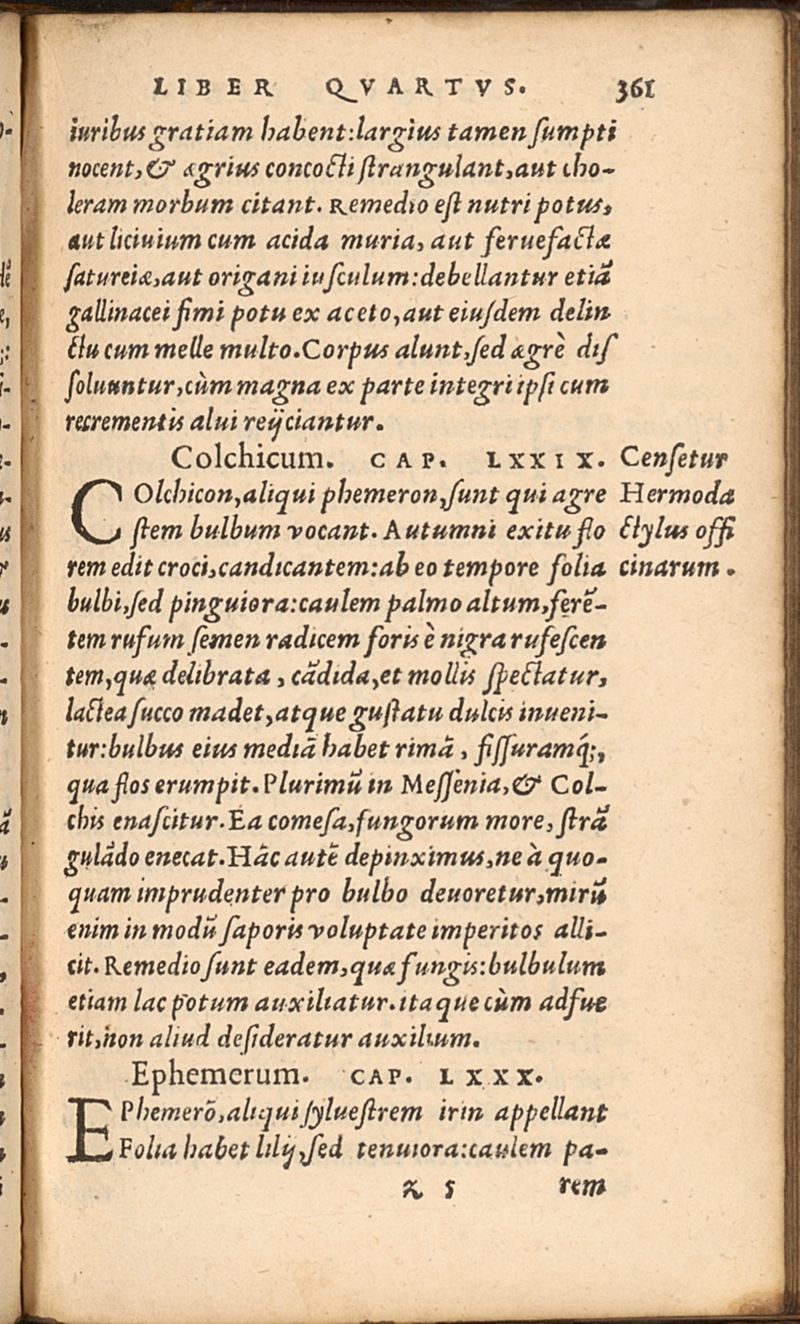 LIBER QVARTVS. 361
iuribus gratiam habent:largius tamen sumpti
nocent,& ægrius concocti strangulant,aut cho-
leram morbum citant. Remedio est nutri potus,
aut liciuium cum acida muria, aut feruefactæ
satureiæ,aut origani iusculum:debellantur etiã
gallinacei fimi potu ex aceto,aut eiusdem delin
ctu cum melle multo.Corpus alunt,sed ægrè dis
soluuntur,cùm magna ex parte integri ipsi cum
recrementis alui reijciantur.
Colchicum. CAP. LXXIX.
COlchicon,aliqui phemeron,sunt qui agre
stem bulbum vocant. Autumni exitu flo
rem edit croci,candicantem:ab eo tempore folia
bulbi,sed pinguiora:caulem palmo altum,ferẽ-
tem rufum semen radicem foris è nigra rufescen
tem,quæ delibrata, cãdida,et mollis spectatur,
lactea succo madet,atque gustatu dulcis inueni-
tur:bulbus eius mediã habet rimã, fissuramq́;,
qua flos erumpit.Plurimũ in Messenia,& Col-
chis enascitur.Ea comesa,fungorum more, strã
gulãdo enecat.Hãc autẽ depinximus,ne à quo-
quam imprudenter pro bulbo deuoretur,mirũ
enim in modũ saporis voluptate imperitos alli-
cit. Remedio sunt eadem,quæ fungis:bulbulum
etiam lac potum auxiliatur.itaque cùm adfue
rit,non aliud desideratur auxilium.
Censetur
Hermoda
ctylus offi
cinarum.
Ephemerum. CAP. LXXX.
EPhemerõ,aliqui syluestrem irin appellant
Folia habet lilij,sed tenuiora:caulem pa-
z 5 rem